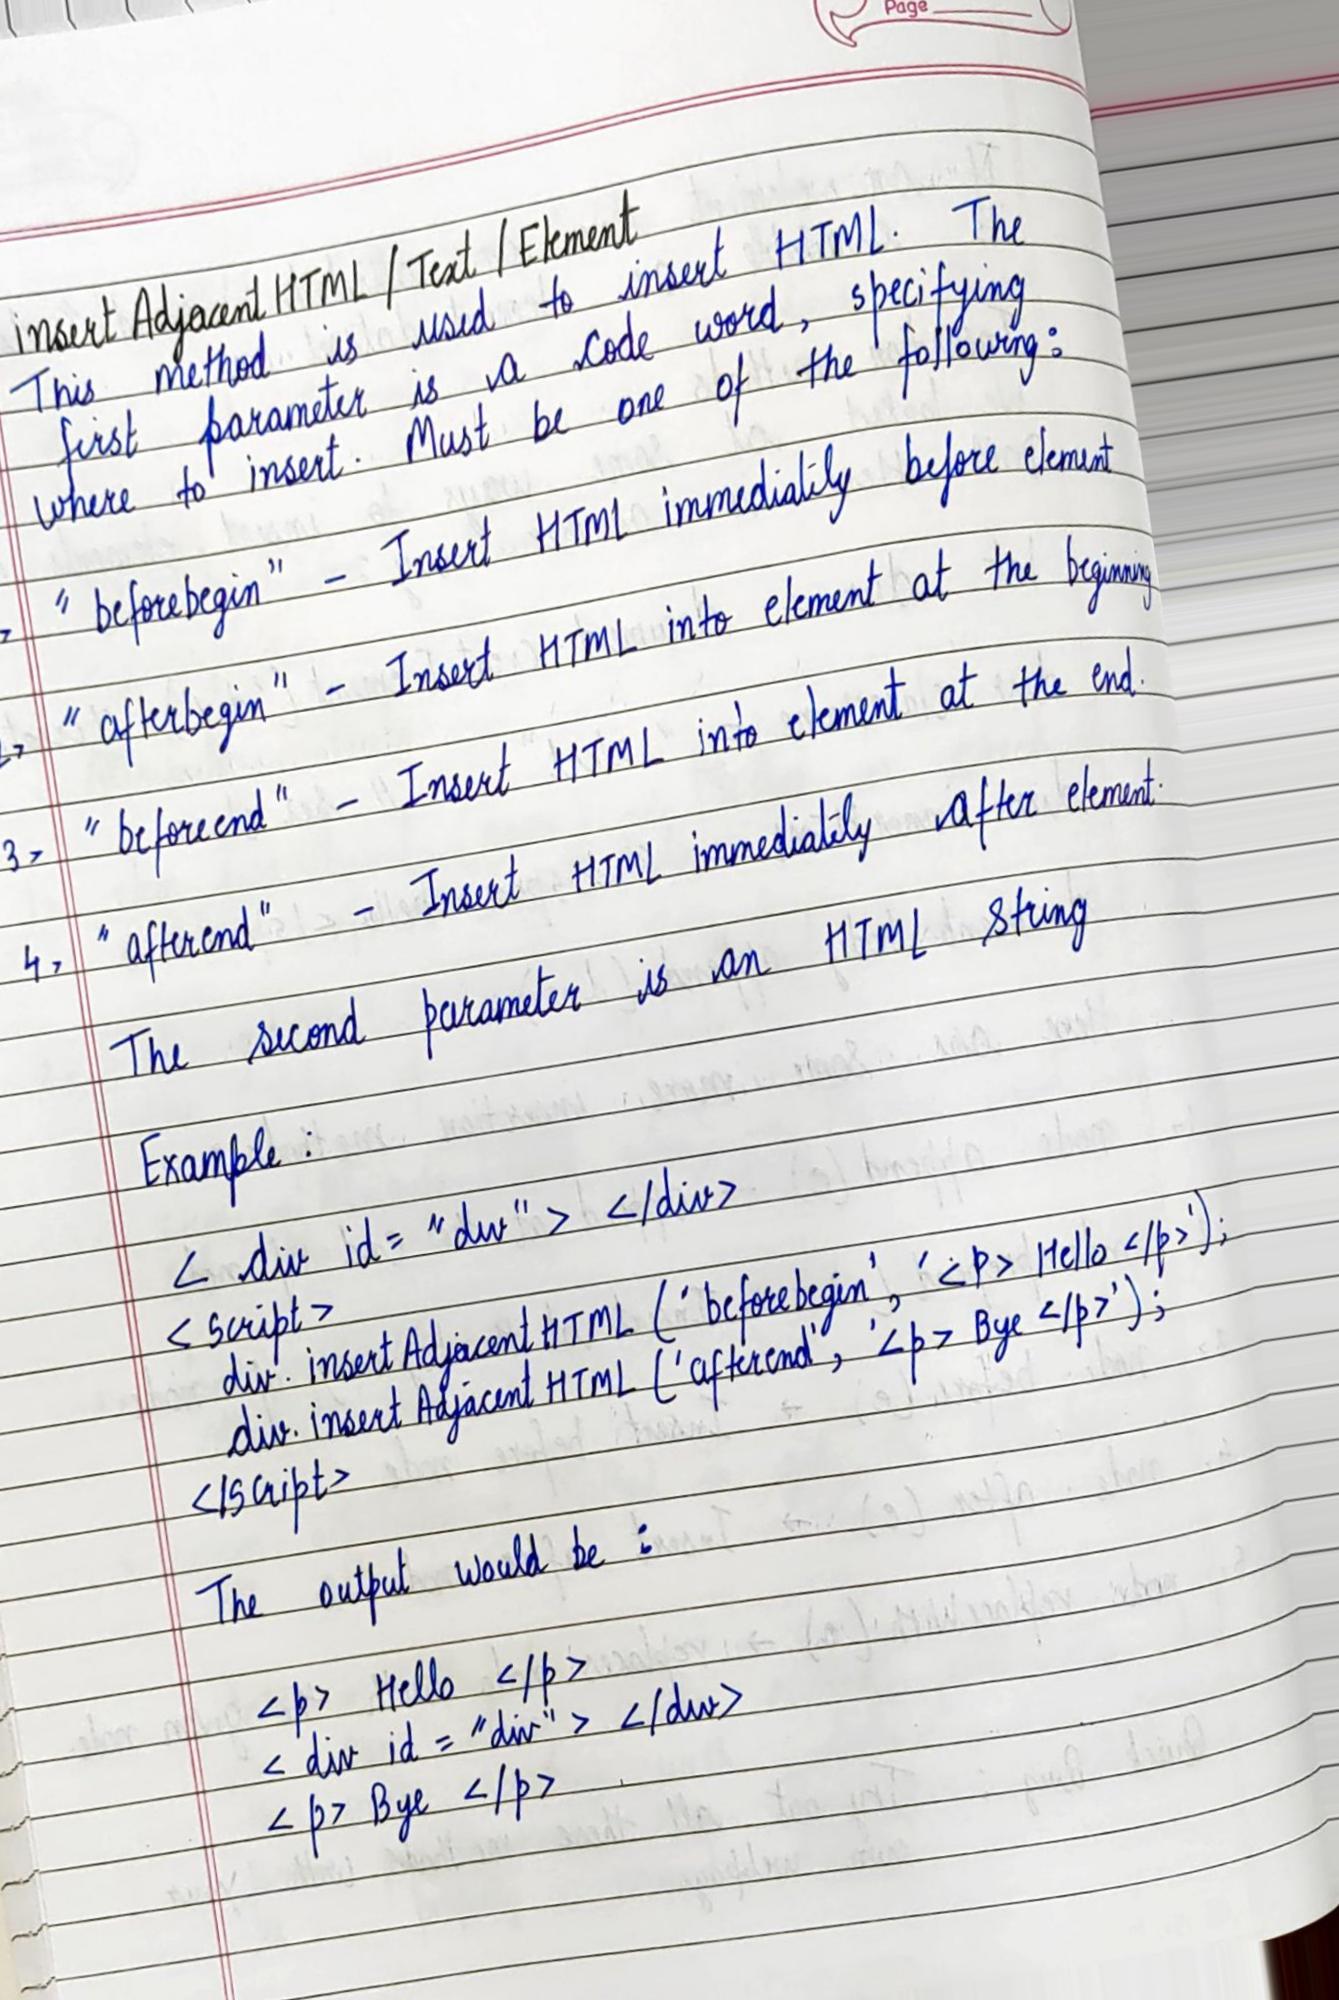 Page
insert Adjacent HTML / Text / Element
This method is used to insert HTML. The
first parameter is a code word, specifying
where to insert. Must be one of the following:
"beforebegin" - Insert HTML immediatily before element
"afterbegin" - Insert HTML into element at the beginning
3, "beforeend" - Insert HTML into element at the end.
4, "afterend" - Insert HTML immediatily after element.
The second parameter is an HTML string
Example :
< div id = "div" > </div>
<script>
div. insert Adjacent HTML ('beforebegin', '<p> Hello </p>');
div. insert Adjacent HTML ('afterend', '<p> Bye </p>');
</script>
The output would be :
<p> Hello </p>
< div id = "div" > </div>
<p> Bye </p>